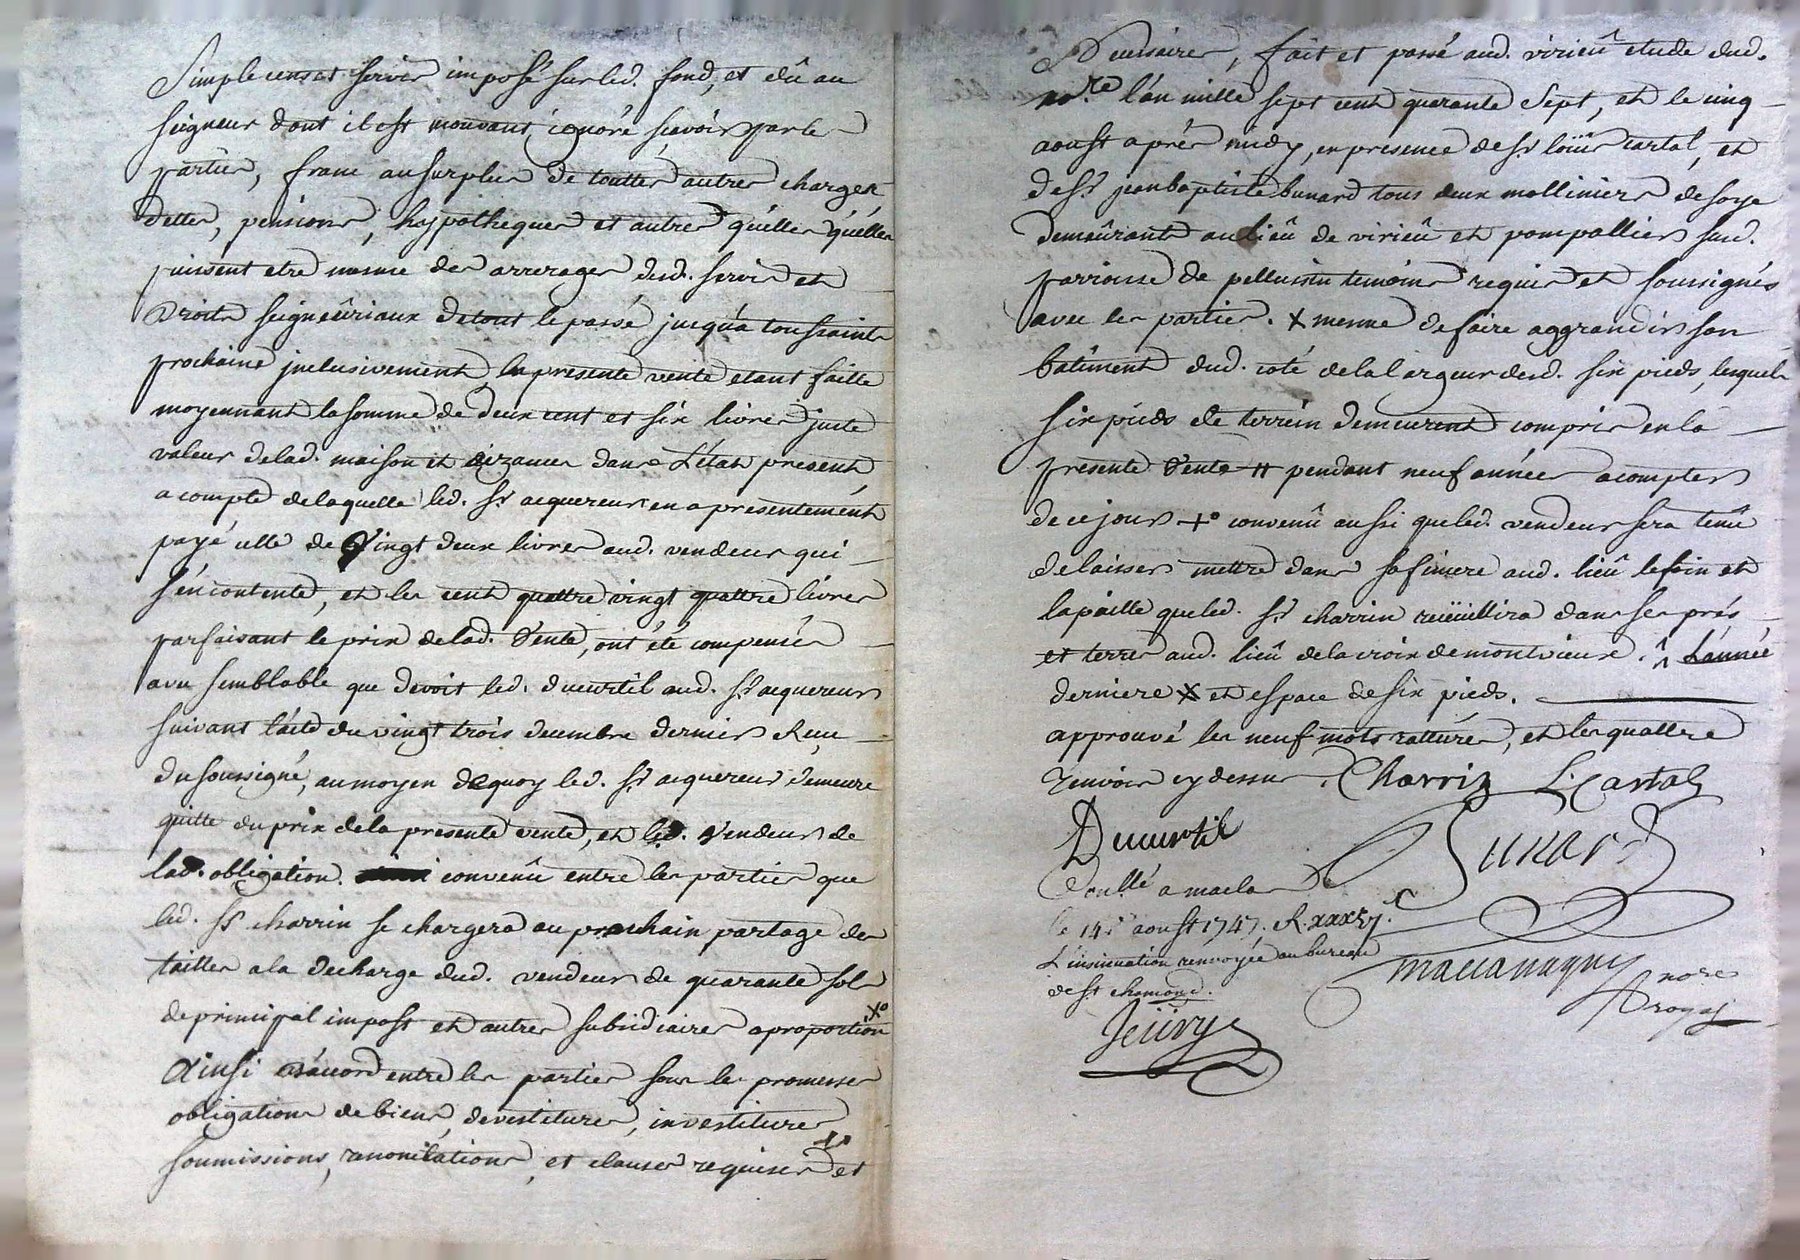 Simple cens et servis imposé sur led. fond, et dû au
seigneur dont il est mouvant ignoré scavoir par les
parties, franc au surplus de touttes autres charges
dettes, pensions, hypotheques et autres quélles quélles
puissent etre mesme des arrerages desd. servis et
droits seigneûriaux de tout le passé jusqu'a toussaints
prochaine jnclusivement, la presente vente etant faitte
moyennant la somme de deux cent et six livres juste
valeur de lad. maison et aizances dans L'état present
a compte de laquelle led. Sr. acquereur en a presentement
payé celle de Vingt deux livres aud. vendeur qui
s'en contente, et les cent quattre vingt quattre livres
parfaisant le prix de lad. Vente, ont été compensés
avec semblable que devoit led. ducurtil aud. Sr. acquereur
suivant l'acte du vingt trois decembre dernier Reçu
du soussigné, au moyen de quoy led. Sr. acquereur demeure
quitte du prix de la presente vente, et led. Vendeur de
lad. obligation. convenû entre les parties que
led. Sr. charrin se chargera au prochain partage des
tailles a la decharge dud. vendeur de quarante sols
de principal impost et autres subsidiaires a proportion x°
Ainsi d'accord entre les parties sous les promesses
obligations de biens, devestitures, investitures
soumissions, renonciations, et clauses requises et
Necessaires, fait et passé aud. virieû etude dud.
nore. l'an mille sept cent quarante Sept, et le cinq
aoust après midy, en presence de Sr. loüis cartal, et
de Sr. jean baptiste bunard tous deux molliniers de soye
demeûrants au lieû de virieû et pompallier susd.
parroisse de pellussin temoins requis et soussignés
avec les parties. X mesme de faire aggrandir son
bâtiment dud. coté de la largeur desd. six pieds, lesquels
six pieds de terrein demeurent compris en la
presente Vente # pendant neuf années a compter
de ce jour +° convenû aussi que led. vendeur sera tenû
de laisser mettre dans sa finiere aud. lieû le foin et
la paille que led. Sr. charrin recüeillira dans ses prés
et terres aud. lieû de la croix de montvieux. L'année
derniere X et espace de six pieds.
approuvé les neuf mots rattures, et les quattre
renvois cy dessus. Charrin L. Cartal
Ducurtil Bunard
Conllé a maclas
le 14e. aoust 1747. R.
L'insinuation renvoyée au bureau
de St. chamond. nore
Royal